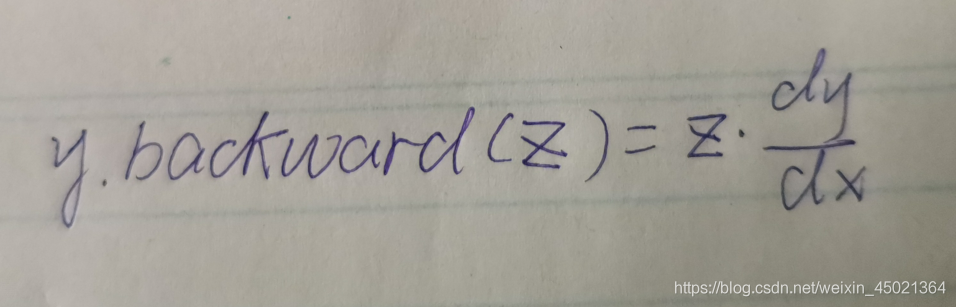 y.backward(z) = z · dy/dx
https://blog.csdn.net/weixin_45021364